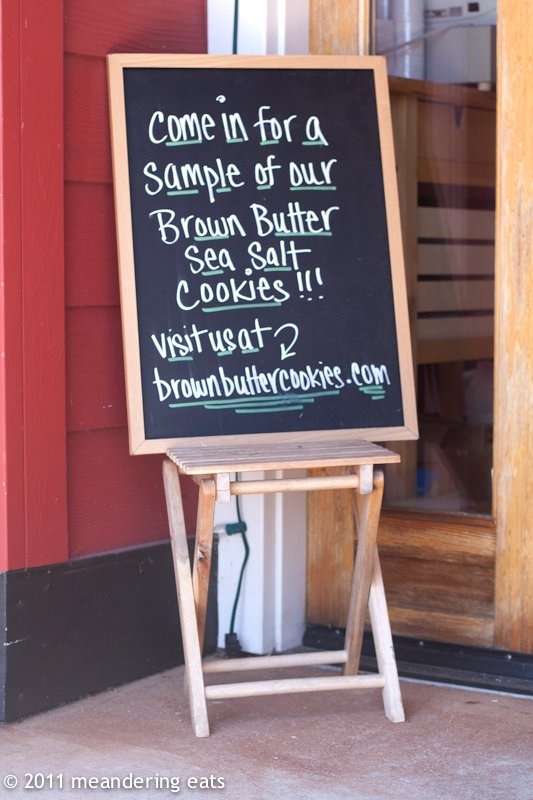 Come in for a
sample of our
Brown Butter
Sea Salt
Cookies!!!
visit us at
brownbuttercookies.com
© 2011 meandering eats